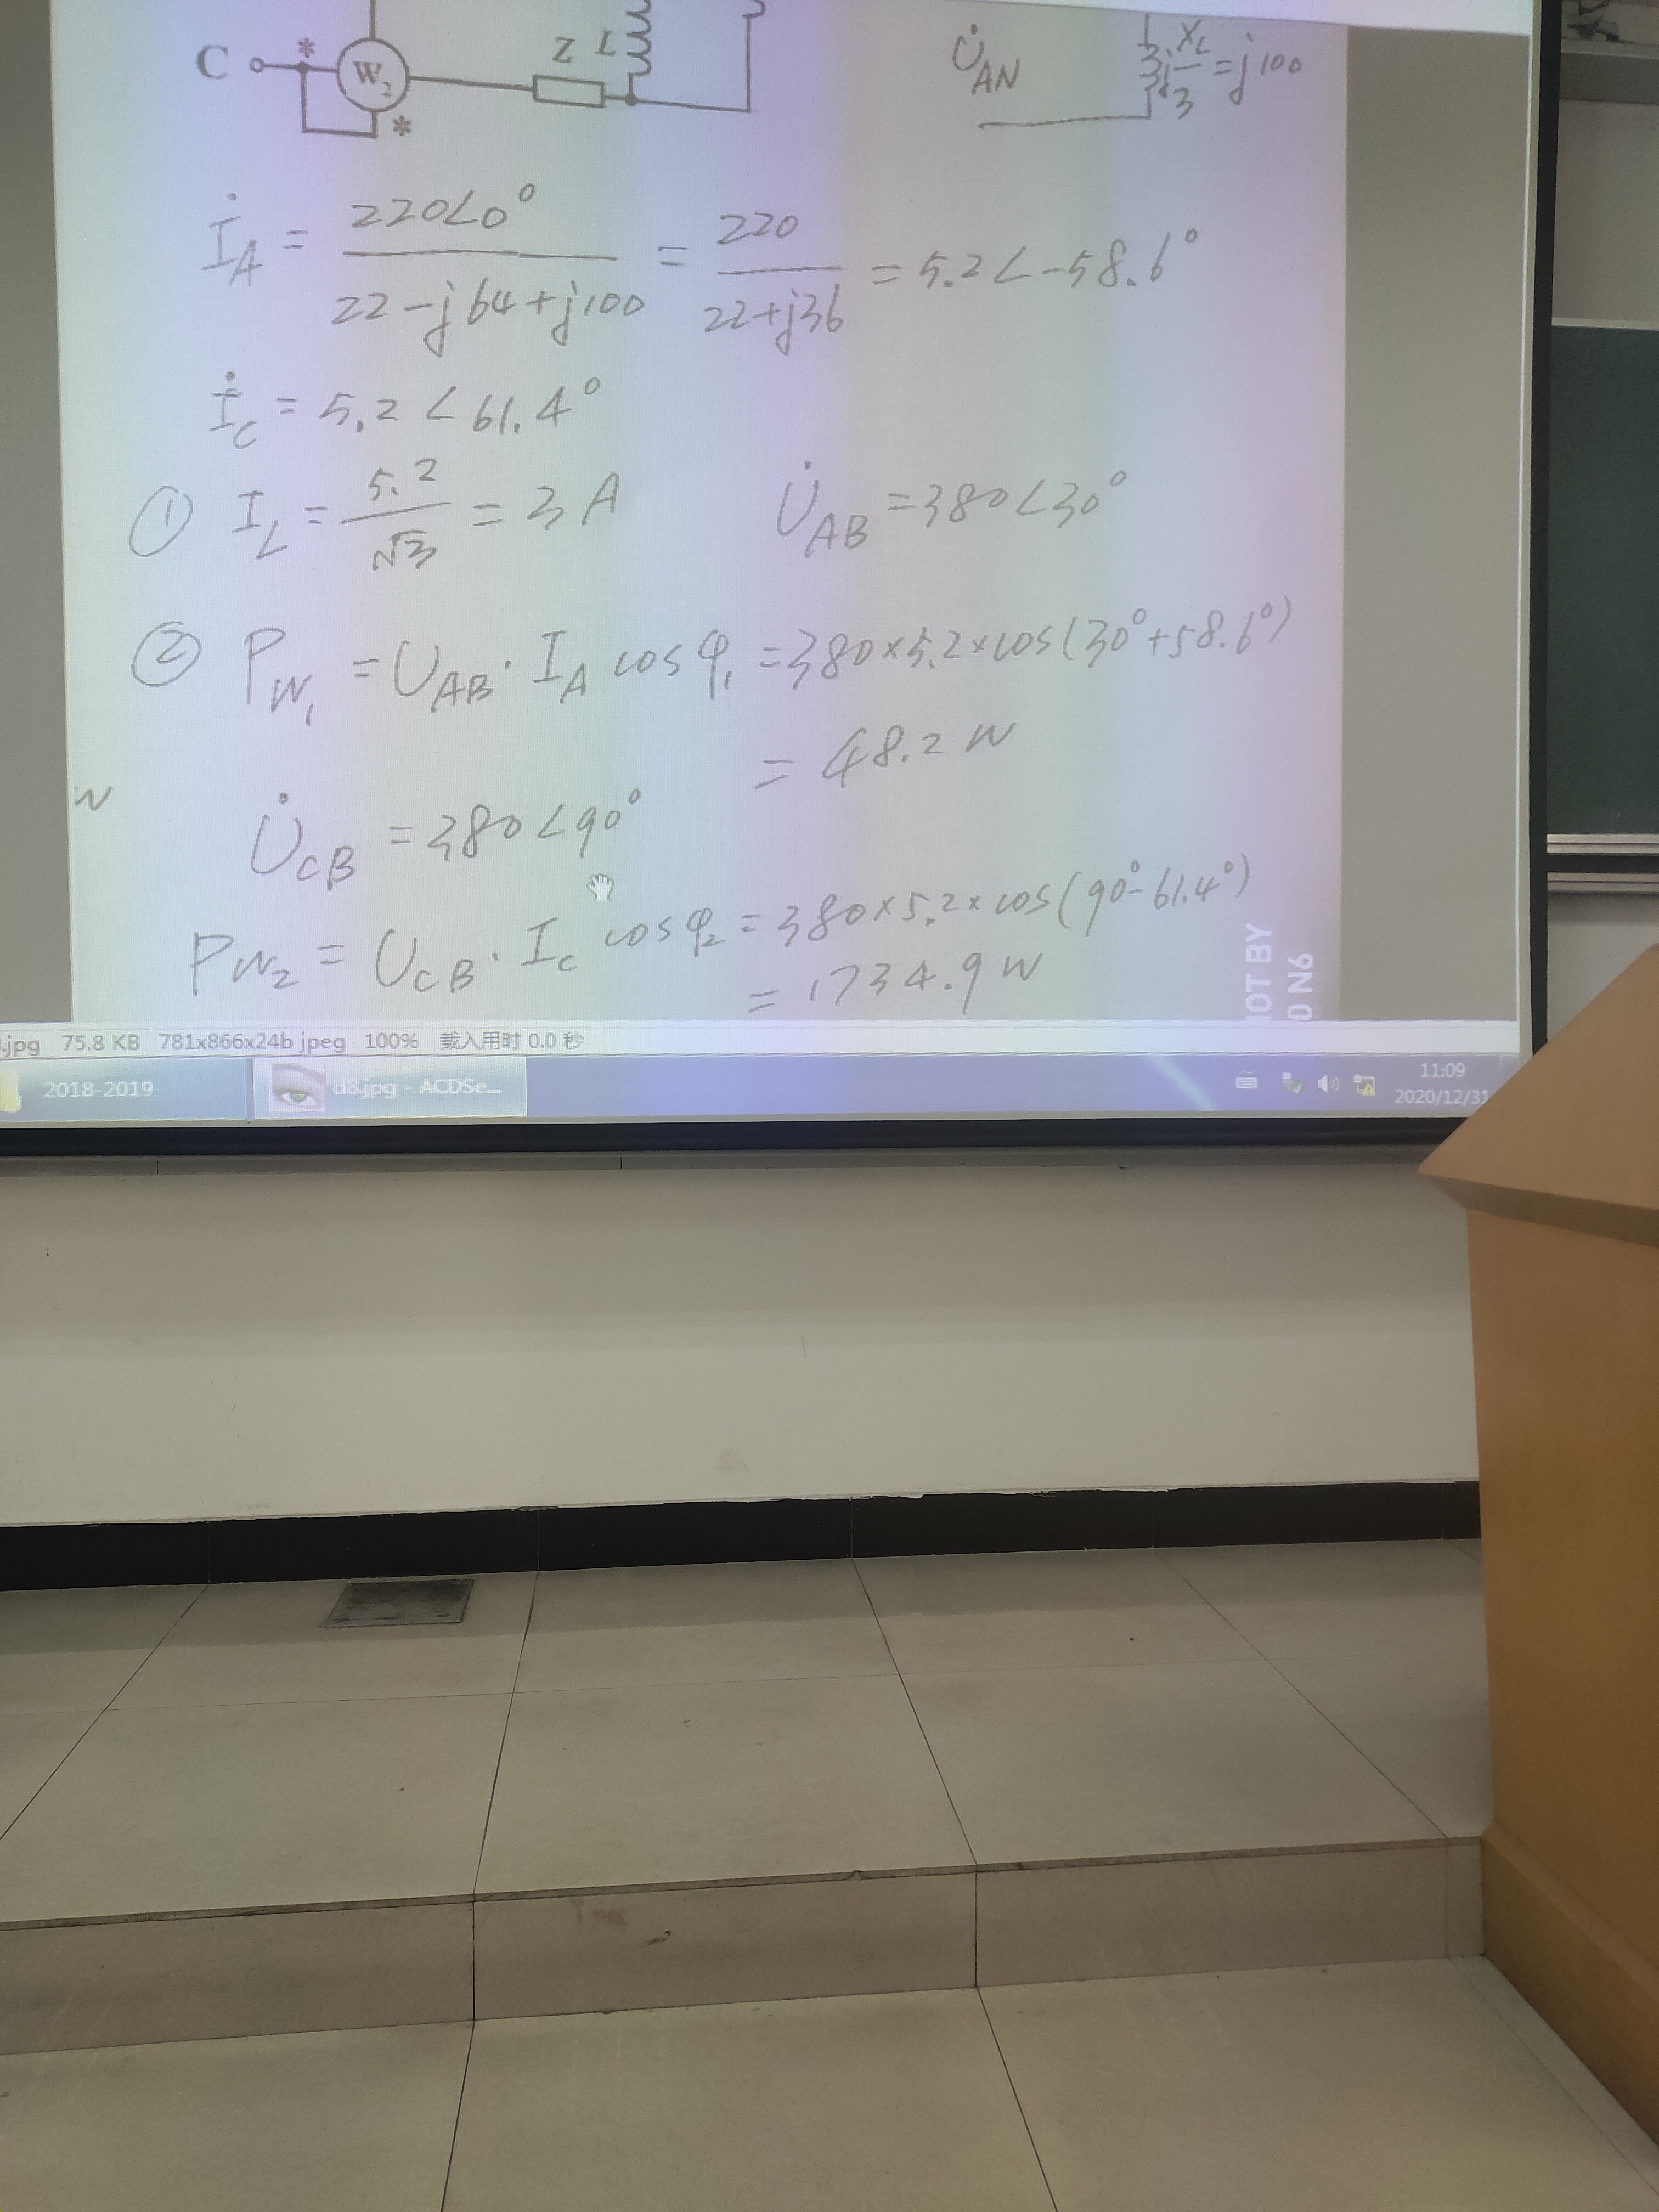 C * W₂ * Z L
U̇_AN jX_L/3 = j100
İ_A = 220∠0° / (22-j64+j100) = 220 / (22+j36) = 5.2∠-58.6°
İ_C = 5.2∠61.4°
① I_L = 5.2/√3 = 3A
U̇_AB = 380∠30°
② P_W₁ = U_AB · I_A cosφ₁ = 380×5.2×cos(30°+58.6°)
= 48.2 W
W
U̇_CB = 380∠90°
P_W₂ = U_CB · I_C cosφ₂ = 380×5.2×cos(90°-61.4°)
= 1734.9 W
.jpg 75.8 KB 781x866x24b jpeg 100% 载入用时 0.0 秒
2018-2019
d8.jpg - ACDSe...
11:09
2020/12/31